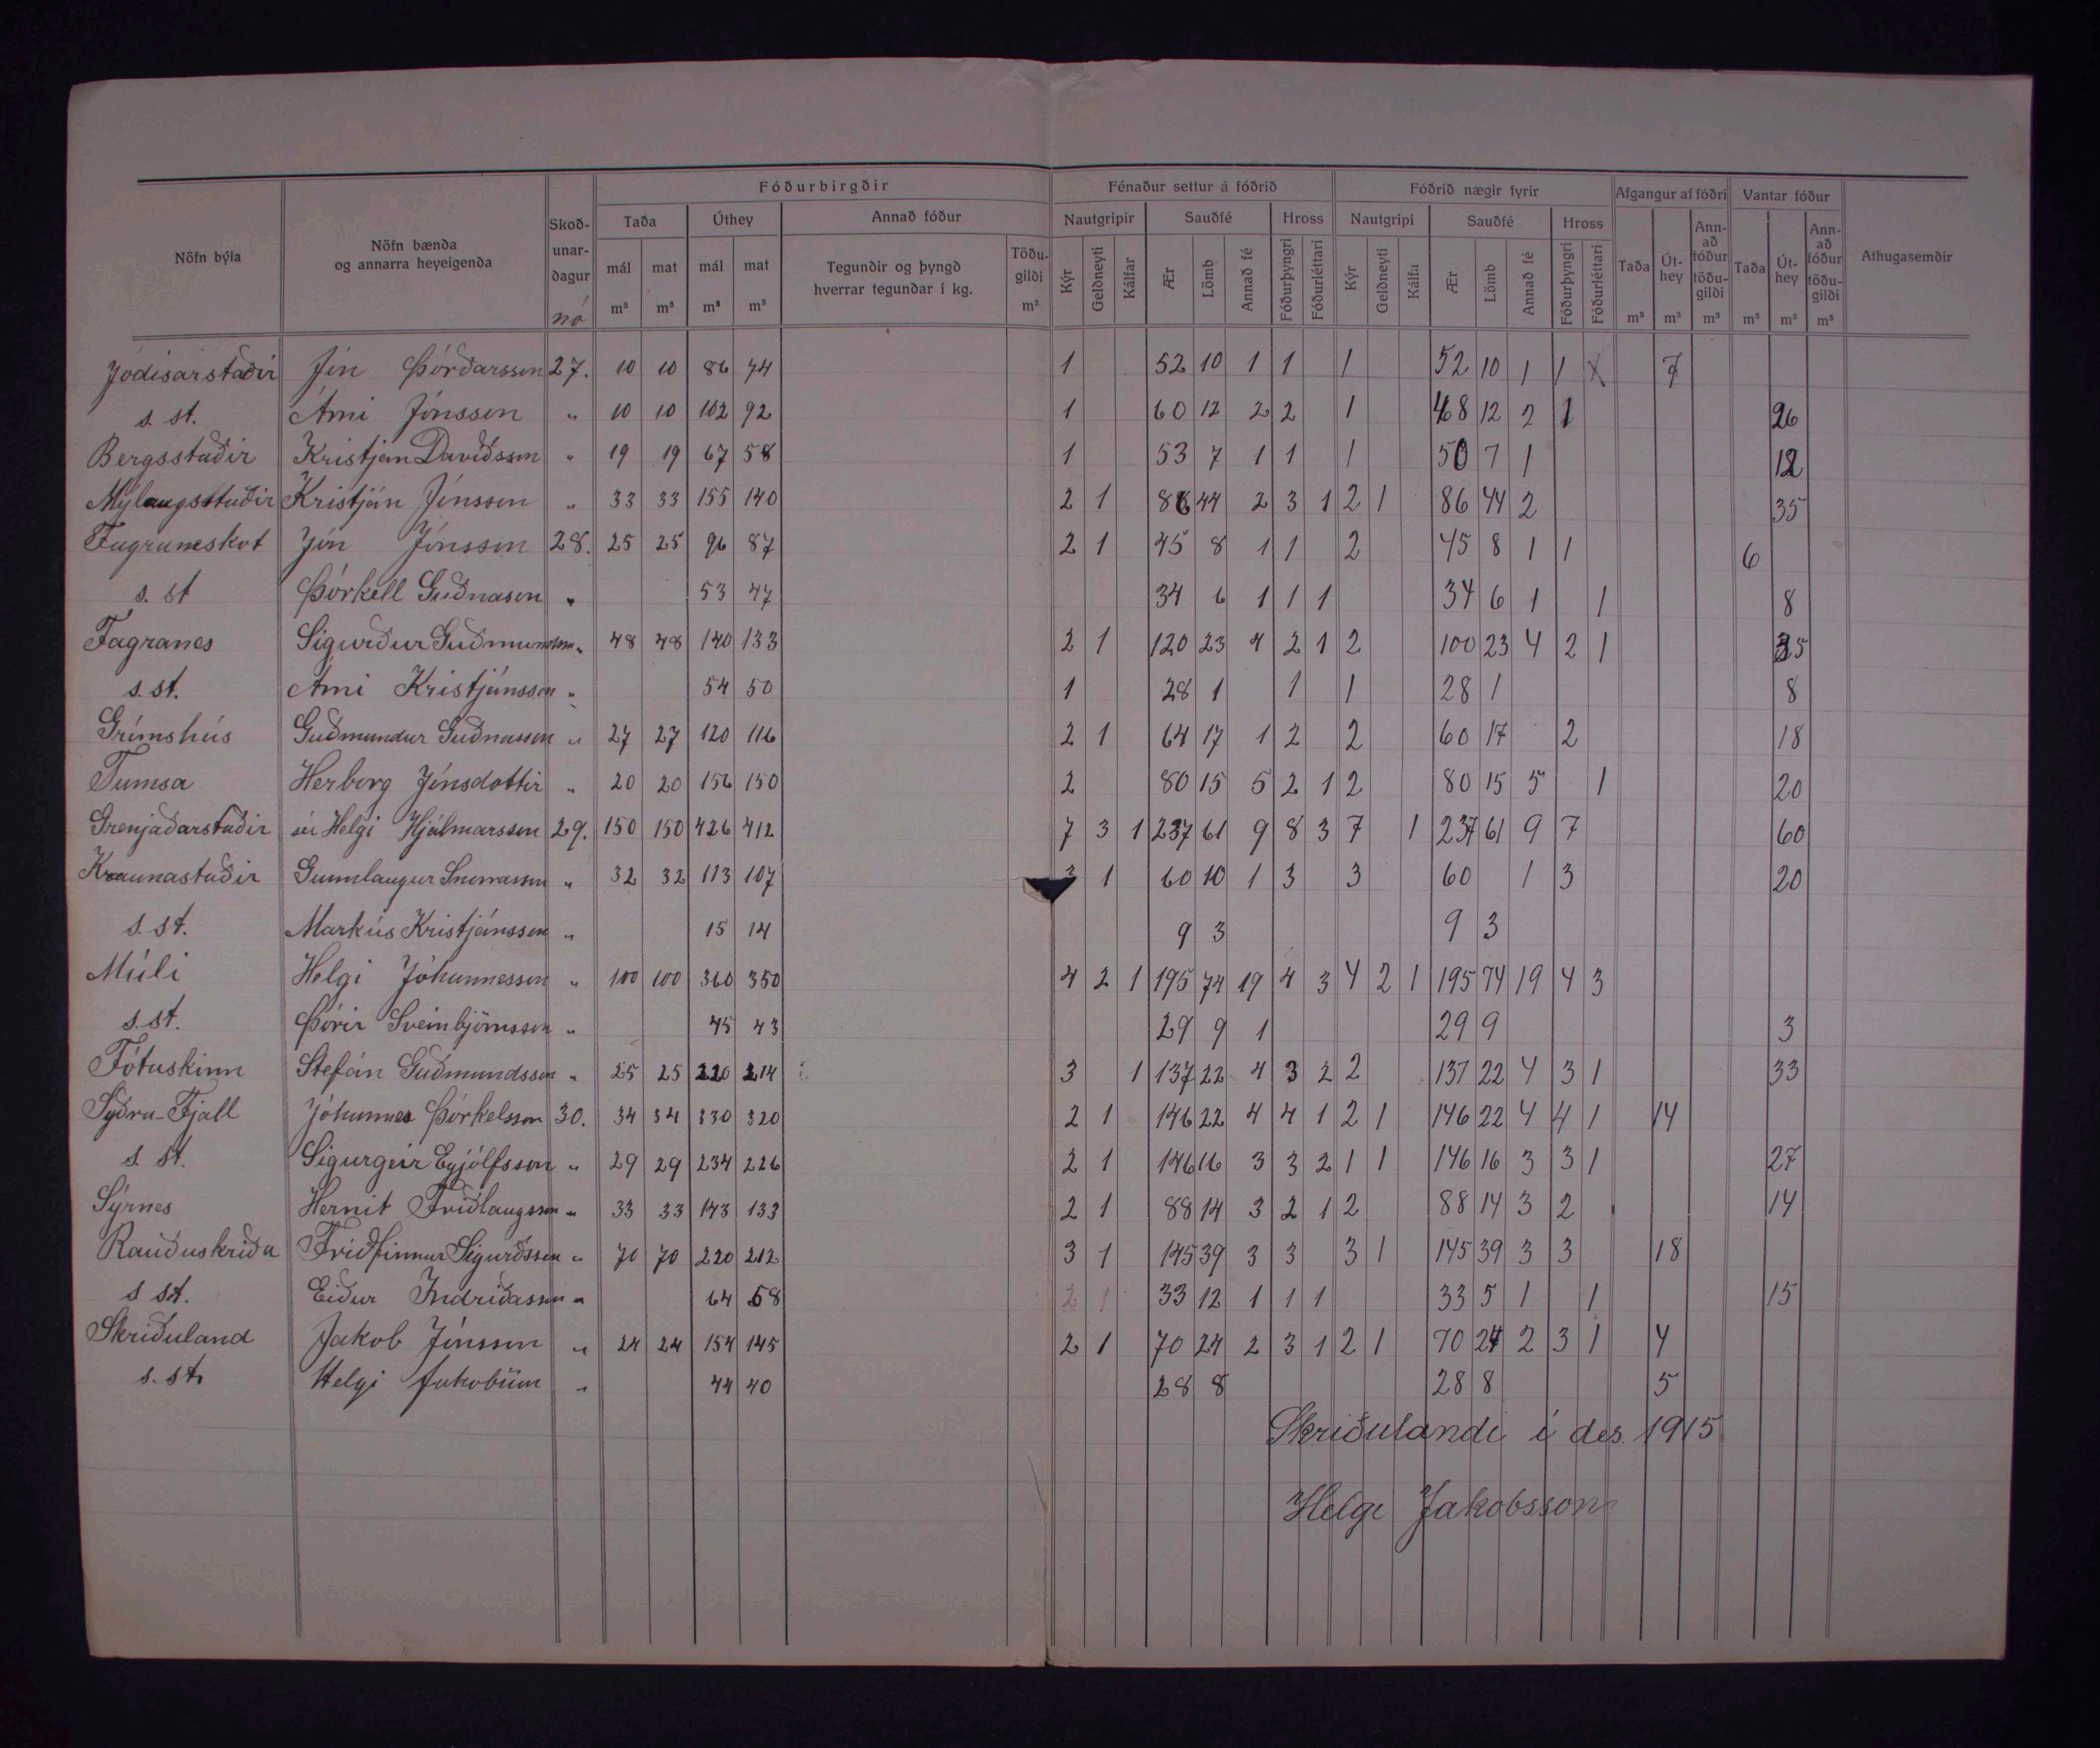 Fóðurbirgðir Fénaður settur á fóðrið Fóðrið nægir fyrir Afgangur af fóðri Vantar fóður
Nöfn býla Nöfn bænda og annarra heyeigenda Skoð-unar-dagur Taða Úthey Annað fóður Nautgripir Sauðfé Hross Nautgripi Sauðfé Hross Taða Út-hey Ann-að fóður töðu-gildi Taða Út-hey Ann-að fóður töðu-gildi Athugasemdir
mál mat mál mat Tegundir og þyngd hverrar tegundar í kg. Töðu-gildi Kýr Geldneyti Kálfar Ær Lömb Annað fé Fóðurþyngri Fóðurléttari Kýr Geldneyti Kálfa Ær Lömb Annað fé Fóðurþyngri Fóðurléttari
nó m³ m³ m³ m³ m³ m³ m³ m³ m³ m³ m³
Jódisarstaðir Jón Þórðarsson 27. 10 10 86 74 1 52 10 1 1 1 52 10 1 1 7
s. st. Árni Jónsson " 10 10 102 92 1 60 12 2 2 1 48 12 2 1 26
Bergsstaðir Kristján Davíðsson " 19 19 67 58 1 53 7 1 1 1 50 7 1 12
Mýlaugsstaðir Kristján Jónsson " 33 33 155 140 2 1 86 44 2 3 1 2 1 86 44 2 35
Fagraneskot Jón Jónsson 28. 25 25 96 87 2 1 45 8 1 1 2 45 8 1 1 6
s. st Þórkell Guðnason " 53 47 34 6 1 1 1 34 6 1 1 8
Fagranes Sigurður Guðmundsson " 48 48 140 133 2 1 120 23 4 2 1 2 100 23 4 2 1 35
s. st. Árni Kristjánsson " 54 50 1 28 1 1 1 28 1 8
Grímshús Guðmundur Guðnasson " 27 27 120 116 2 1 64 17 1 2 2 60 17 2 18
Tumsa Herborg Jónsdottir " 20 20 156 150 2 80 15 5 2 1 2 80 15 5 1 20
Grenjaðarstaðir séi Helgi Hjálmarsson 29. 150 150 426 412 7 3 1 237 61 9 8 3 7 1 237 61 9 7 60
Kraunastaðir Gunnlaugur Snorrasson " 32 32 113 107 3 1 60 10 1 3 3 60 1 3 20
s. st. Markús Kristjánsson " 15 14 9 3 9 3
Múli Helgi Jóhannesson " 100 100 360 350 4 2 1 195 74 19 4 3 4 2 1 195 74 19 4 3
s. st. Þórir Sveinbjörnsson " 45 43 29 9 1 29 9 3
Fótaskinn Stefán Guðmundsson " 25 25 220 214 3 1 137 22 4 3 2 2 137 22 4 3 1 33
Syðra-Fjall Jóhannes Þórkelsson 30. 34 34 330 320 2 1 146 22 4 4 1 2 1 146 22 4 4 1 14
s. st. Sigurgeir Eyjólfsson " 29 29 234 226 2 1 146 16 3 3 2 1 1 146 16 3 3 1 27
Sýrnes Hernit Friðlaugsson " 33 33 143 133 2 1 88 14 3 2 1 2 88 14 3 2 14
Rauðuskriða Friðfinnur Sigurðsson " 70 70 220 212 3 1 145 39 3 3 3 1 145 39 3 3 18
s st. Eiður Indriðasson " 64 58 2 1 33 12 1 1 1 33 5 1 1 15
Skriðuland Jakob Jónsson " 24 24 154 145 2 1 70 24 2 3 1 2 1 70 24 2 3 1 4
s. st. Helgi " 44 40 28 8 28 8 5
Skriðulandi í des. 1915
Helgi Jakobsson